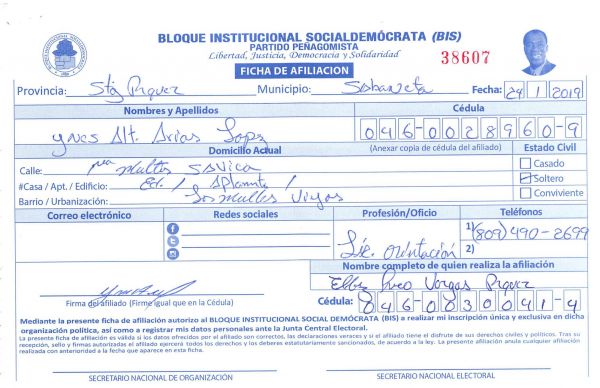 BLOQUE INSTITUCIONAL SOCIALDEMÓCRATA (BIS)
PARTIDO PEÑAGOMISTA
Libertad, Justicia, Democracia y Solidaridad
38607
FICHA DE AFILIACION
Provincia: Stg Rguez Municipio: Sabaneta Fecha: 24 1 2019
Nombres y Apellidos Cédula
Yves Alt. Arias Lopez 046-0028960-9
Domicilio Actual (Anexar copia de cédula del afiliado) Estado Civil
Calle: multes Savica Casado
#Casa / Apt. / Edificio: Ed. 1 Aplamnto 1 Soltero
Barrio / Urbanización: Los multes Viejos Conviviente
Correo electrónico Redes sociales Profesión/Oficio Teléfonos
Lic. Orientación 1) (809) 490-2699
2)
Nombre completo de quien realiza la afiliación
Vargas Rguez
Firma del afiliado (Firme igual que en la Cédula) Cédula: 046-0030041-4
Mediante la presente ficha de afiliación autorizo al BLOQUE INSTITUCIONAL SOCIAL DEMÓCRATA (BIS) a realizar mi inscripción única y exclusiva en dicha
organización política, así como a registrar mis datos personales ante la Junta Central Electoral.
La presente ficha de afiliación es válida si los datos ofrecidos por el afiliado son correctos, las declaraciones veraces y si el afiliado tiene el disfrute de sus derechos civiles y políticos. Tras su
recepción, sello y firmas autorizadas el afiliado ejercerá todos los derechos y los deberes estatutariamente sancionados, de acuerdo a la ley. La presente afiliación anula cualquier afiliación
realizada con anterioridad a la fecha que aparece en esta ficha.
SECRETARIO NACIONAL DE ORGANIZACIÓN SECRETARIO NACIONAL ELECTORAL